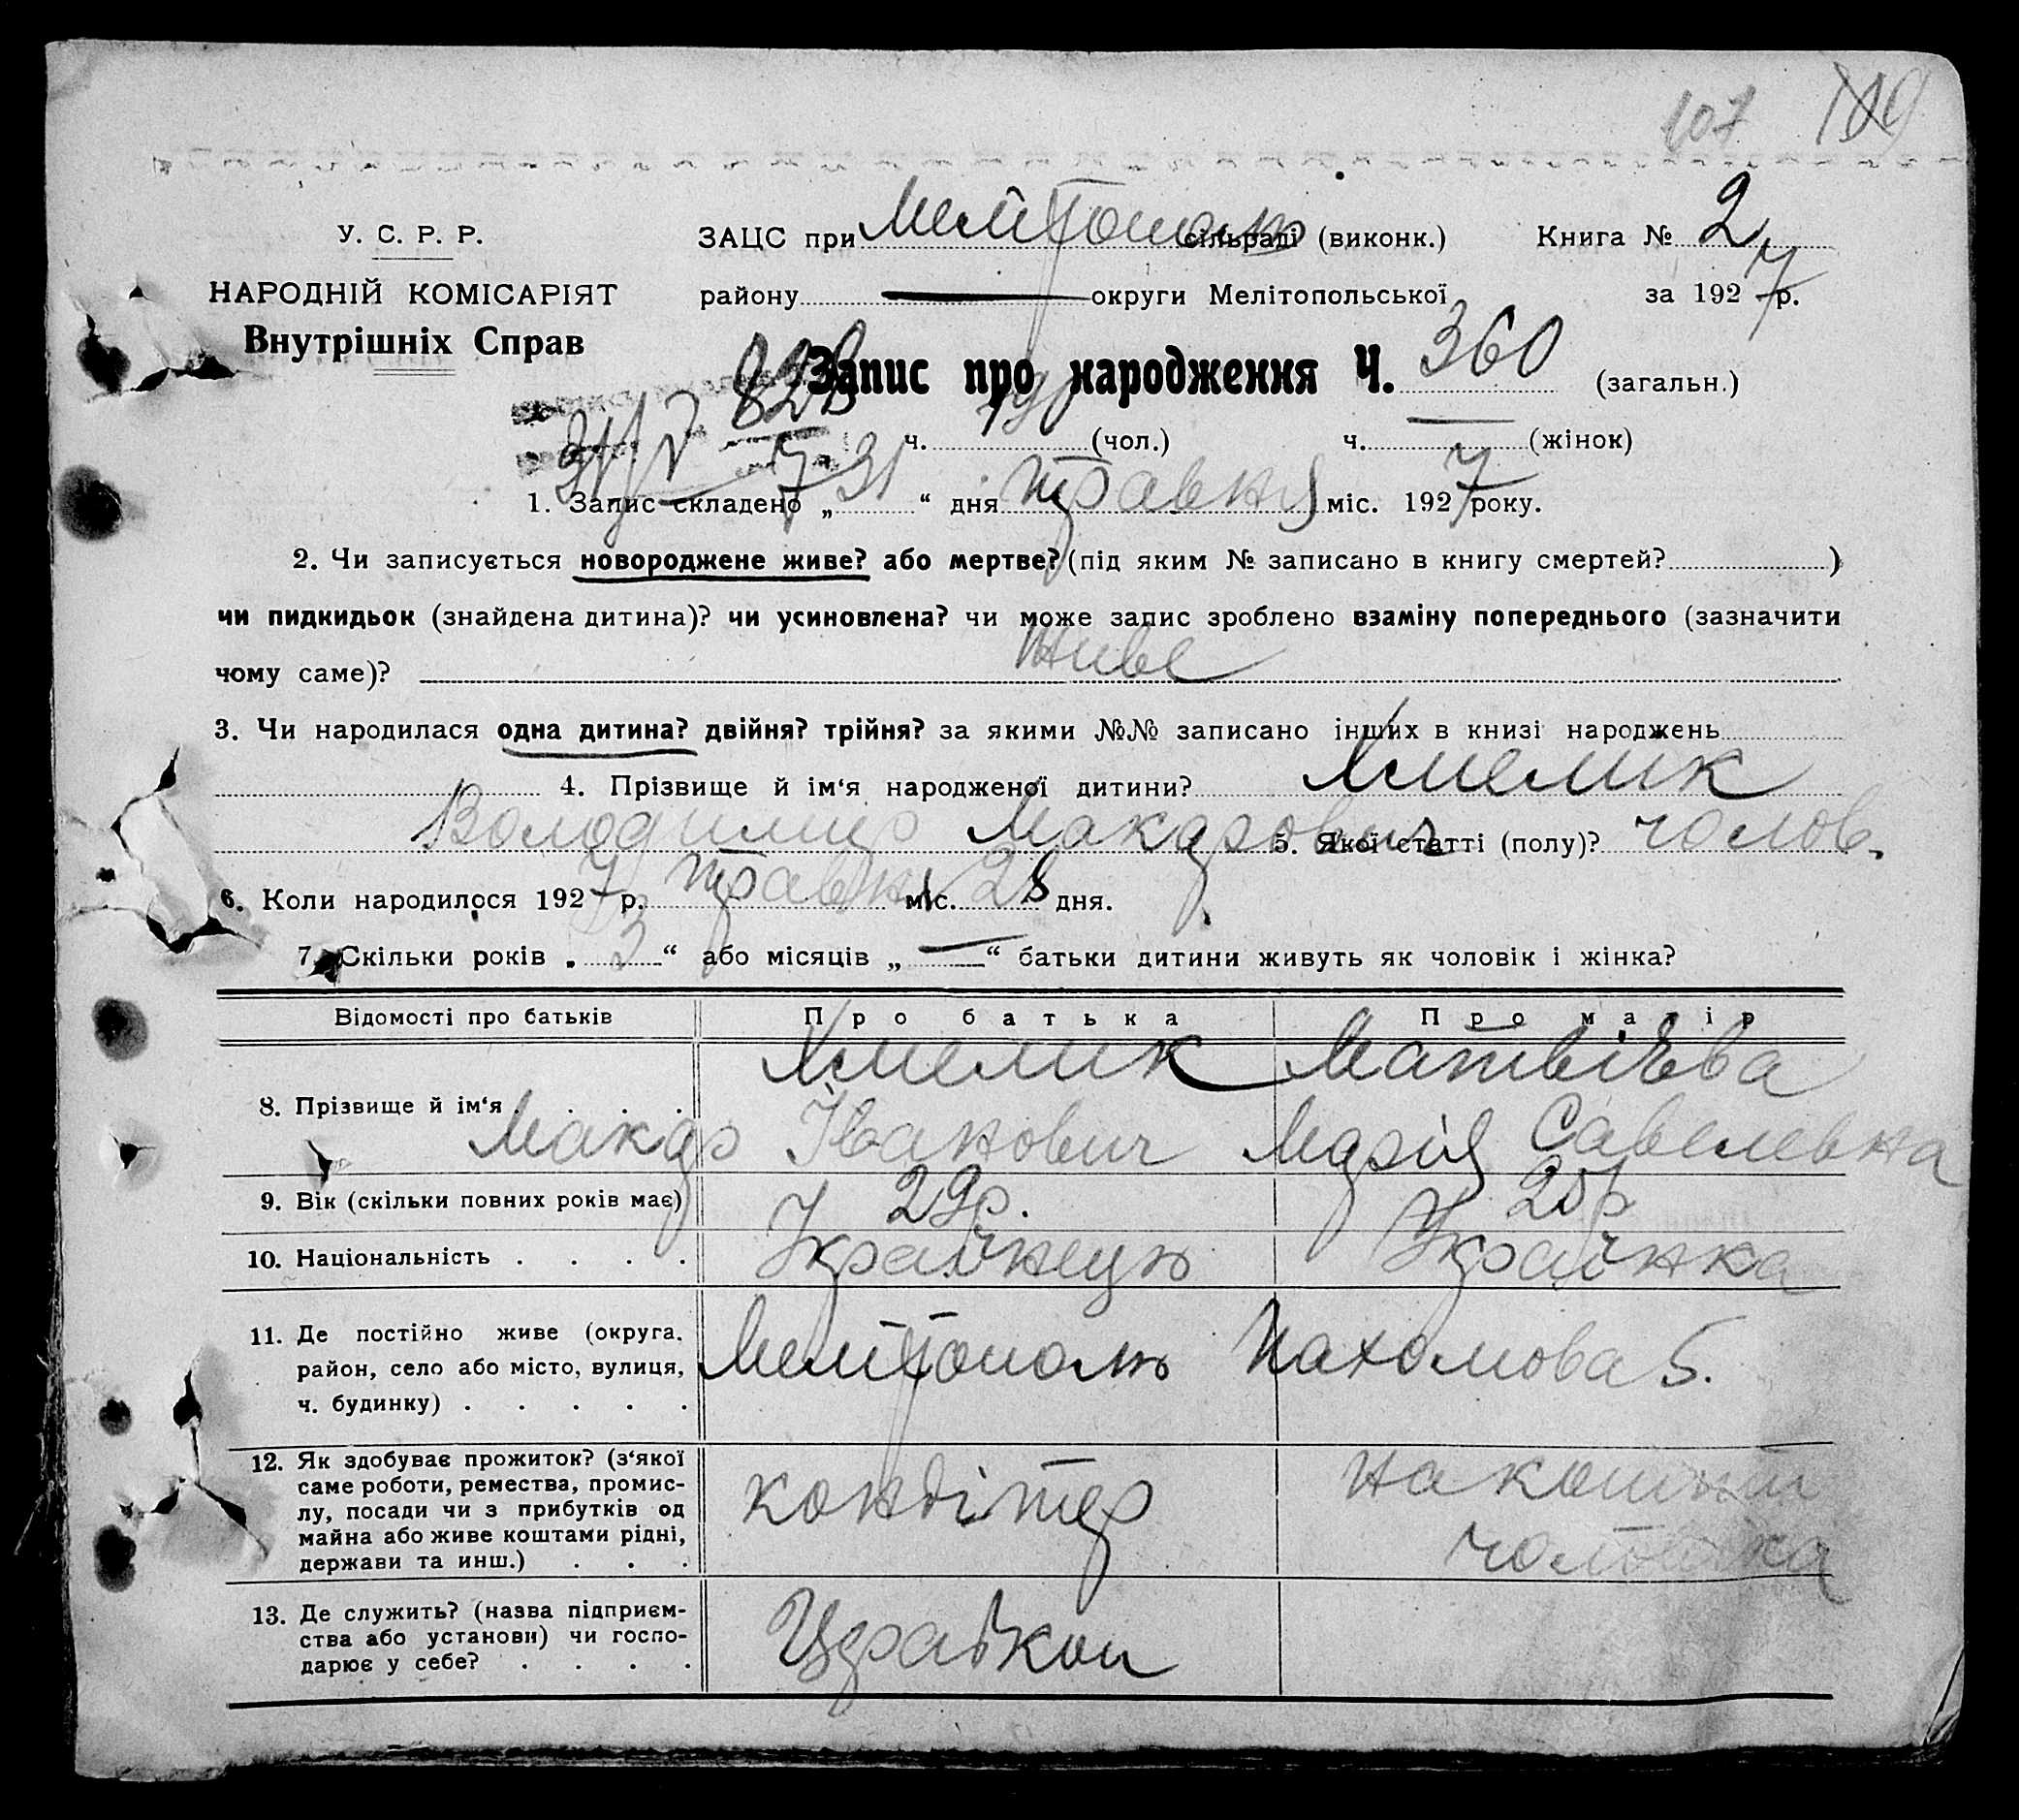 107 109
У. С. Р. Р. ЗАЦС при Мелітополь сільраді (виконк.) Книга № 2
НАРОДНІЙ КОМІСАРІЯТ району — округи Мелітопольської за 1927 р.
Внутрішніх Справ
828 Запис про народження Ч. 360 (загальн.)
31/V 7 ч. 190 (чол.) ч. — (жінок)
1. Запис складено „ 31 “ дня травня міс. 1927 року.
2. Чи записується новороджене живе? або мертве? (під яким № записано в книгу смертей? )
чи пидкидьок (знайдена дитина)? чи усиновлена? чи може запис зроблено взаміну попереднього (зазначити
чому саме)? живе
3. Чи народилася одна дитина? двійня? трійня? за якими №№ записано інших в книзі народжень
4. Прізвище й ім‘я народженої дитини? Хмелик
Володимир Макарович 5. Якої статті (полу)? чолов.
6. Коли народилося 1927 р. травня міс. 28 дня.
7. Скільки років „ 3 “ або місяців „ — “ батьки дитини живуть як чоловік і жінка?
Відомості про батьків Про батька Про матір
Хмелик Матвієва
8. Прізвище й ім‘я . . . .
Макар Іванович Марія Савелевна
9. Вік (скільки повних років має) 29 р. 25 р
10. Національність . . . . Українець Українка
11. Де постійно живе (округа,
район, село або місто, вулиця, Мелітополь Пахомова 5.
ч. будинку) . . . . .
12. Як здобуває прожиток? (з‘якої
саме роботи, ремества, промис-
лу, посади чи з прибутків од
майна або живе коштами рідні,
держави та инш.) . . .
кондітер на кошти
чоловіка
13. Де служить? (назва підприєм-
ства або установи) чи госпо-
дарює у себе? . . . .
Церабкоп